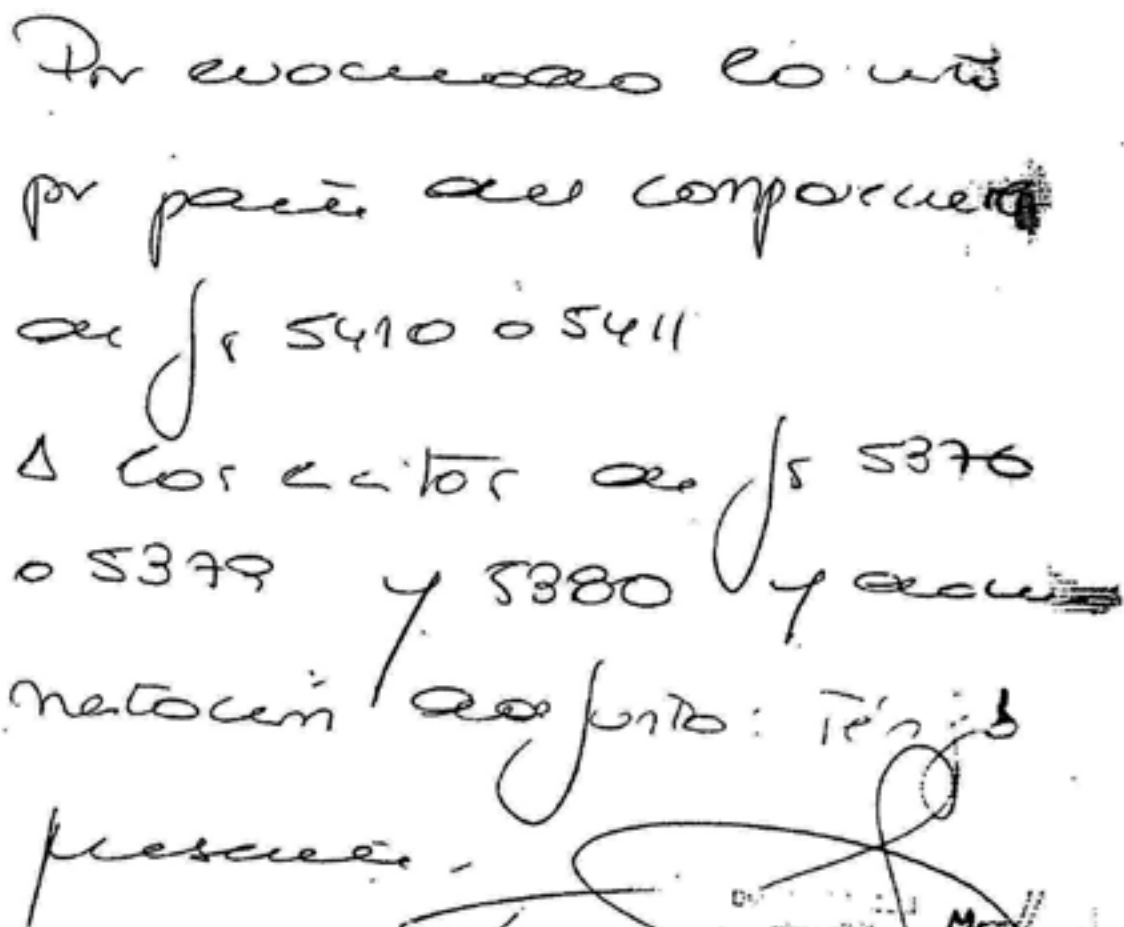 Por evacuado la vista
por parte del compareciente
de fs 5410 a 5411
A los escritos de fs 5376
a 5379 y 5380 y docume
ntación adjunta: Téngase
presente.